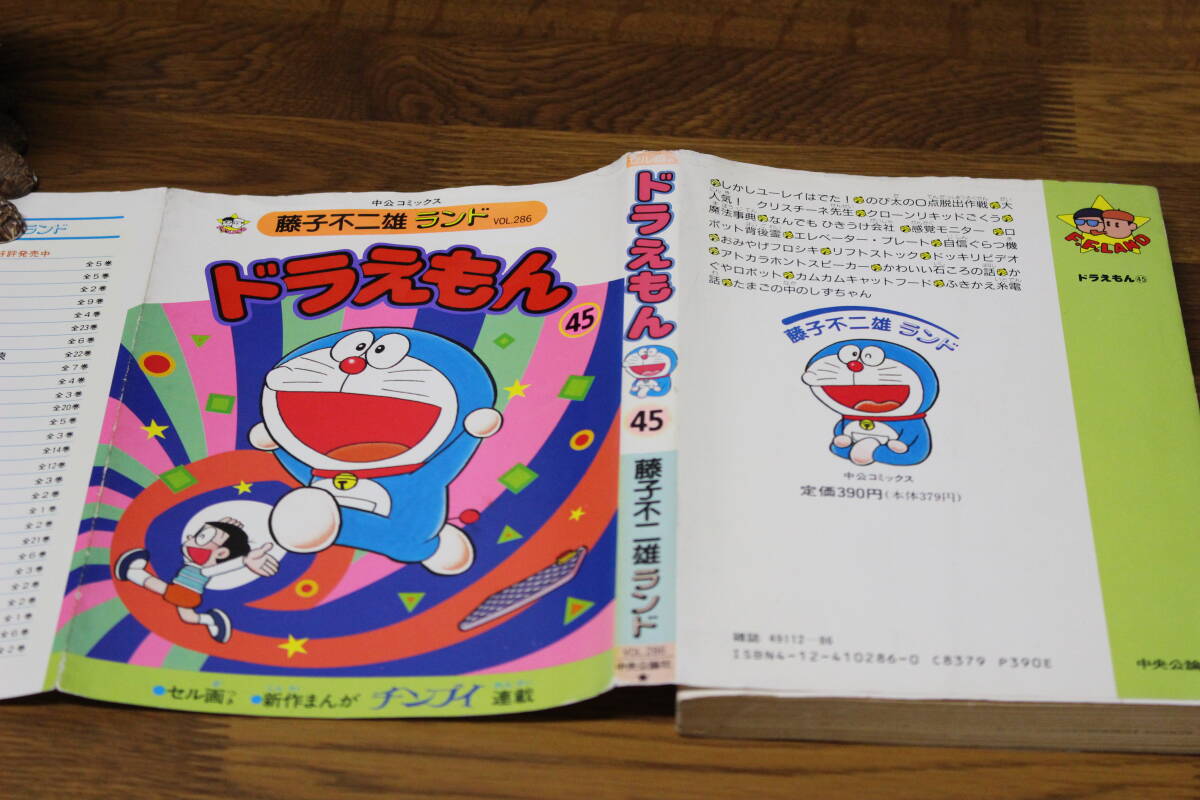 ランド
好評発売中
全5巻
全5巻
全2巻
全9巻
全4巻
全23巻
全6巻
全22巻
全7巻
全4巻
全3巻
全20巻
全5巻
全3巻
全14巻
全12巻
全3巻
全2巻
全1巻
全2巻
全21巻
全6巻
全3巻
全2巻
全2巻
全1巻
全6巻
全2巻
中公コミックス
藤子不二雄 ランド VOL.286
ドラえもん
45
●セル画つき ●新作まんが チンプイ 連載
ドラえもん
45
藤子不二雄ランド
VOL.286
中央公論社
しかしユーレイはでた!のび太の0点脱出作戦大
人気! クリスチーネ先生クローンリキッドごくう
魔法事典なんでも ひきうけ会社 感覚モニター ロ
ボット背後霊エレベーター・プレート自信ぐらつ機
おみやげフロシキリフトストックドッキリビデオ
アトカラホントスピーカーかわいい石ころの話か
ぐやロボットカムカムキャットフードふきかえ糸電
話たまごの中のしずちゃん
藤子不二雄 ランド
中公コミックス
定価390円(本体379円)
雑誌 49112-86
ISBN4-12-410286-0 C8379 P390E
F.F.LAND
ドラえもん45
中央公論